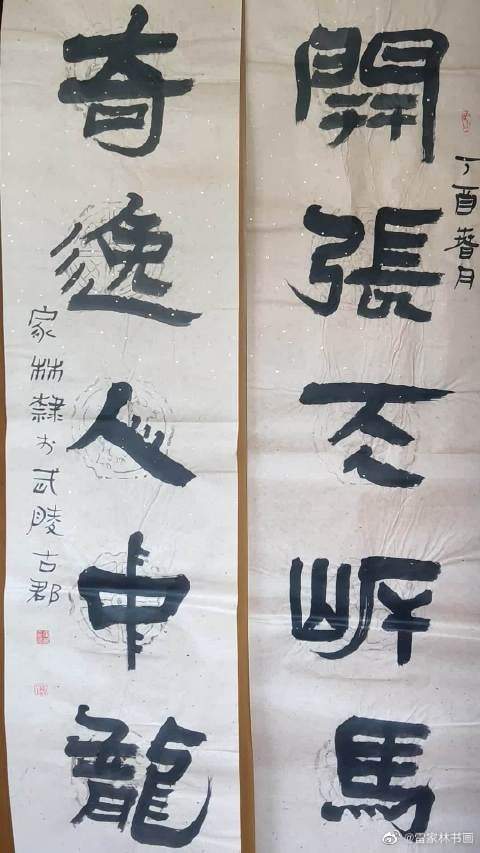 丁酉春月
開張天岸馬
奇逸人中龍
家林隸於武陵古郡
@雷家林书画